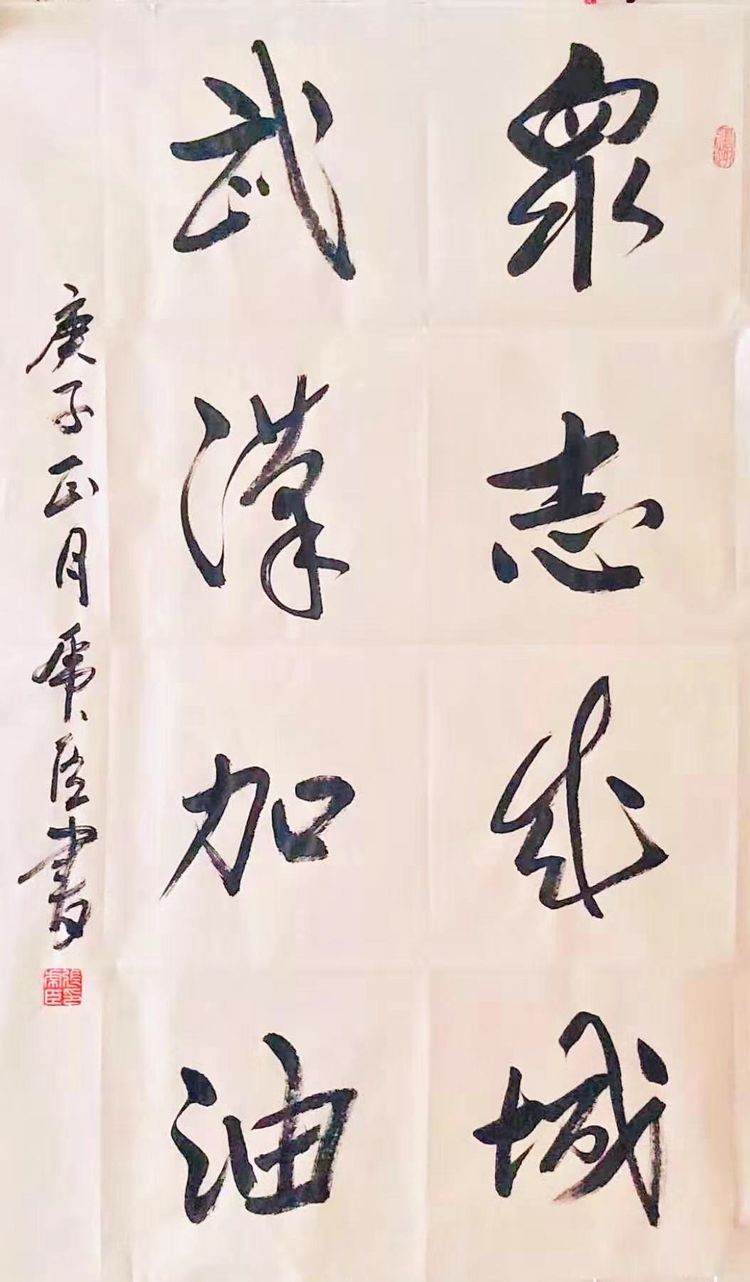 眾志成城
武漢加油
庚子正月虎臣書